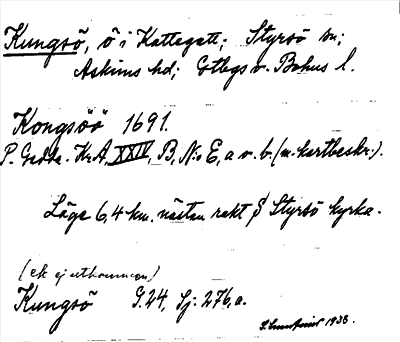 Kungsö, ö i Kattegatt; Styrsö sn;
Askims hd; Gtbgs o. Bohus l.
Kongsöö 1691.
P. Gedda. Kr.A. XXIV, B, N:o E, a o. b. (m. kartbeskr.).
Läge 6,4 km. nästan rakt S Styrsö kyrka.
(ek ej utkommen)
Kungsö G. 24, Sj: 276, a.
1933.